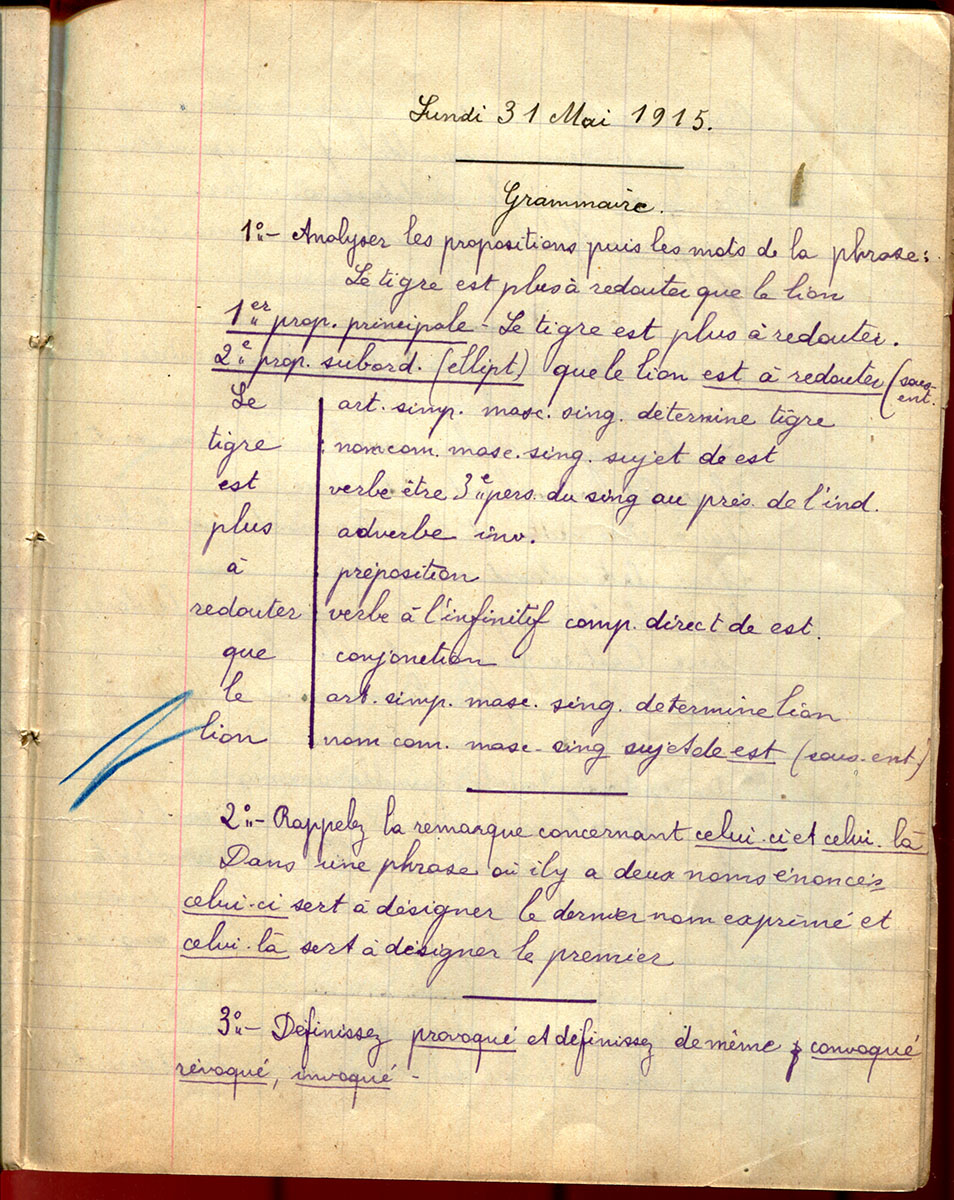 Lundi 31 Mai 1915.
Grammaire.
1°- Analyser les propositions puis les mots de la phrase:
Le tigre est plus à redouter que le lion
1er prop. principale - Le tigre est plus à redouter.
2e prop. subord. (ellipt) que le lion est à redouter (sous-ent.
Le art. simp. masc. sing. determine tigre
tigre nom com. masc. sing. sujet de est
est verbe être 3e pers. du sing au prés. de l'ind.
plus adverbe inv.
à préposition
redouter verbe à l'infinitif comp. direct de est.
que conjonction
le art. simp. masc. sing. determine lion
lion nom com. masc. sing sujet de est (sous-ent.)
2°- Rappelez la remarque concernant celui-ci et celui-là
Dans une phrase où il y a deux noms énoncés
celui-ci sert à désigner le dernier nom exprimé et
celui-là sert à désigner le premier
3°- Définissez provoqué et définissez de même convoqué
révoqué, invoqué -